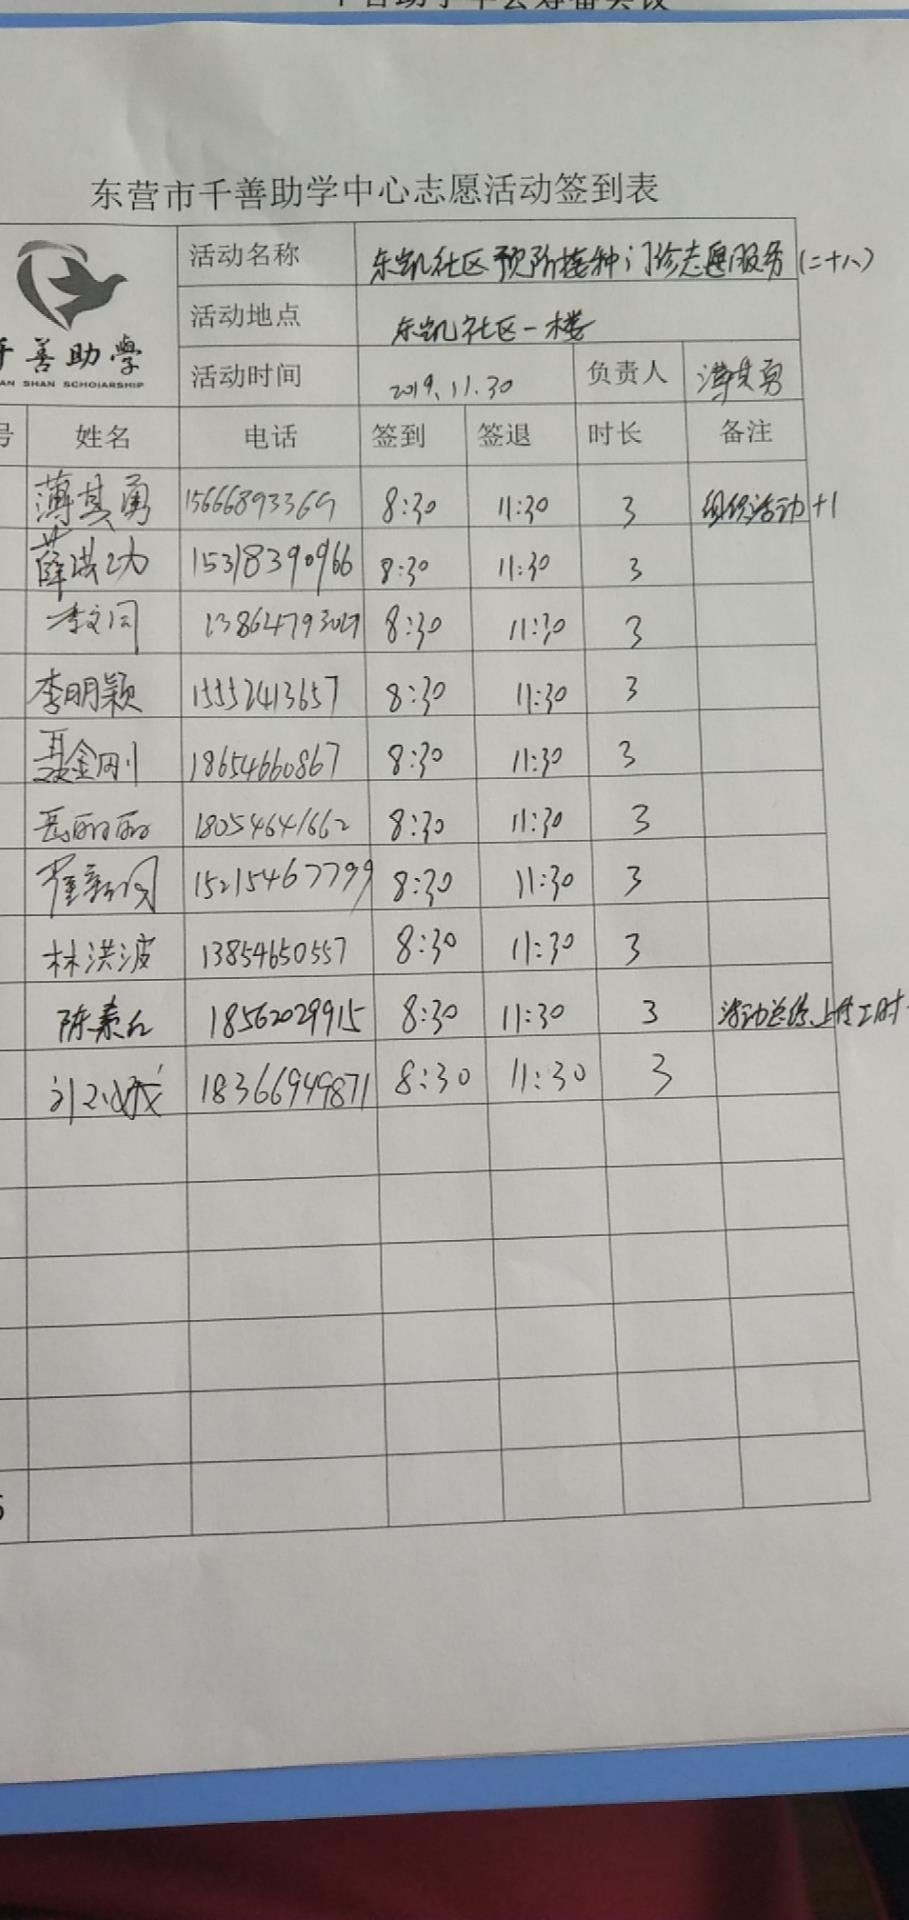 东营市千善助学中心志愿活动签到表
千善助学
AN SHAN SCHOLARSHIP
活动名称 东凯社区预防接种门诊志愿服务(二十八)
活动地点 东凯社区一楼
活动时间 2019.11.30 负责人 薄其勇
号 姓名 电话 签到 签退 时长 备注
薄其勇 15666893369 8:30 11:30 3 组织活动+1
薛洪功 15318390966 8:30 11:30 3
李文同 8:30 11:30 3
李明颖 15552413657 8:30 11:30 3
聂金刚 18654660867 8:30 11:30 3
岳丽丽 18054641662 8:30 11:30 3
15215467799 8:30 11:30 3
林洪波 13854650557 8:30 11:30 3
陈素红 18562029915 8:30 11:30 3 活动总结、上传工时
18366949871 8:30 11:30 3